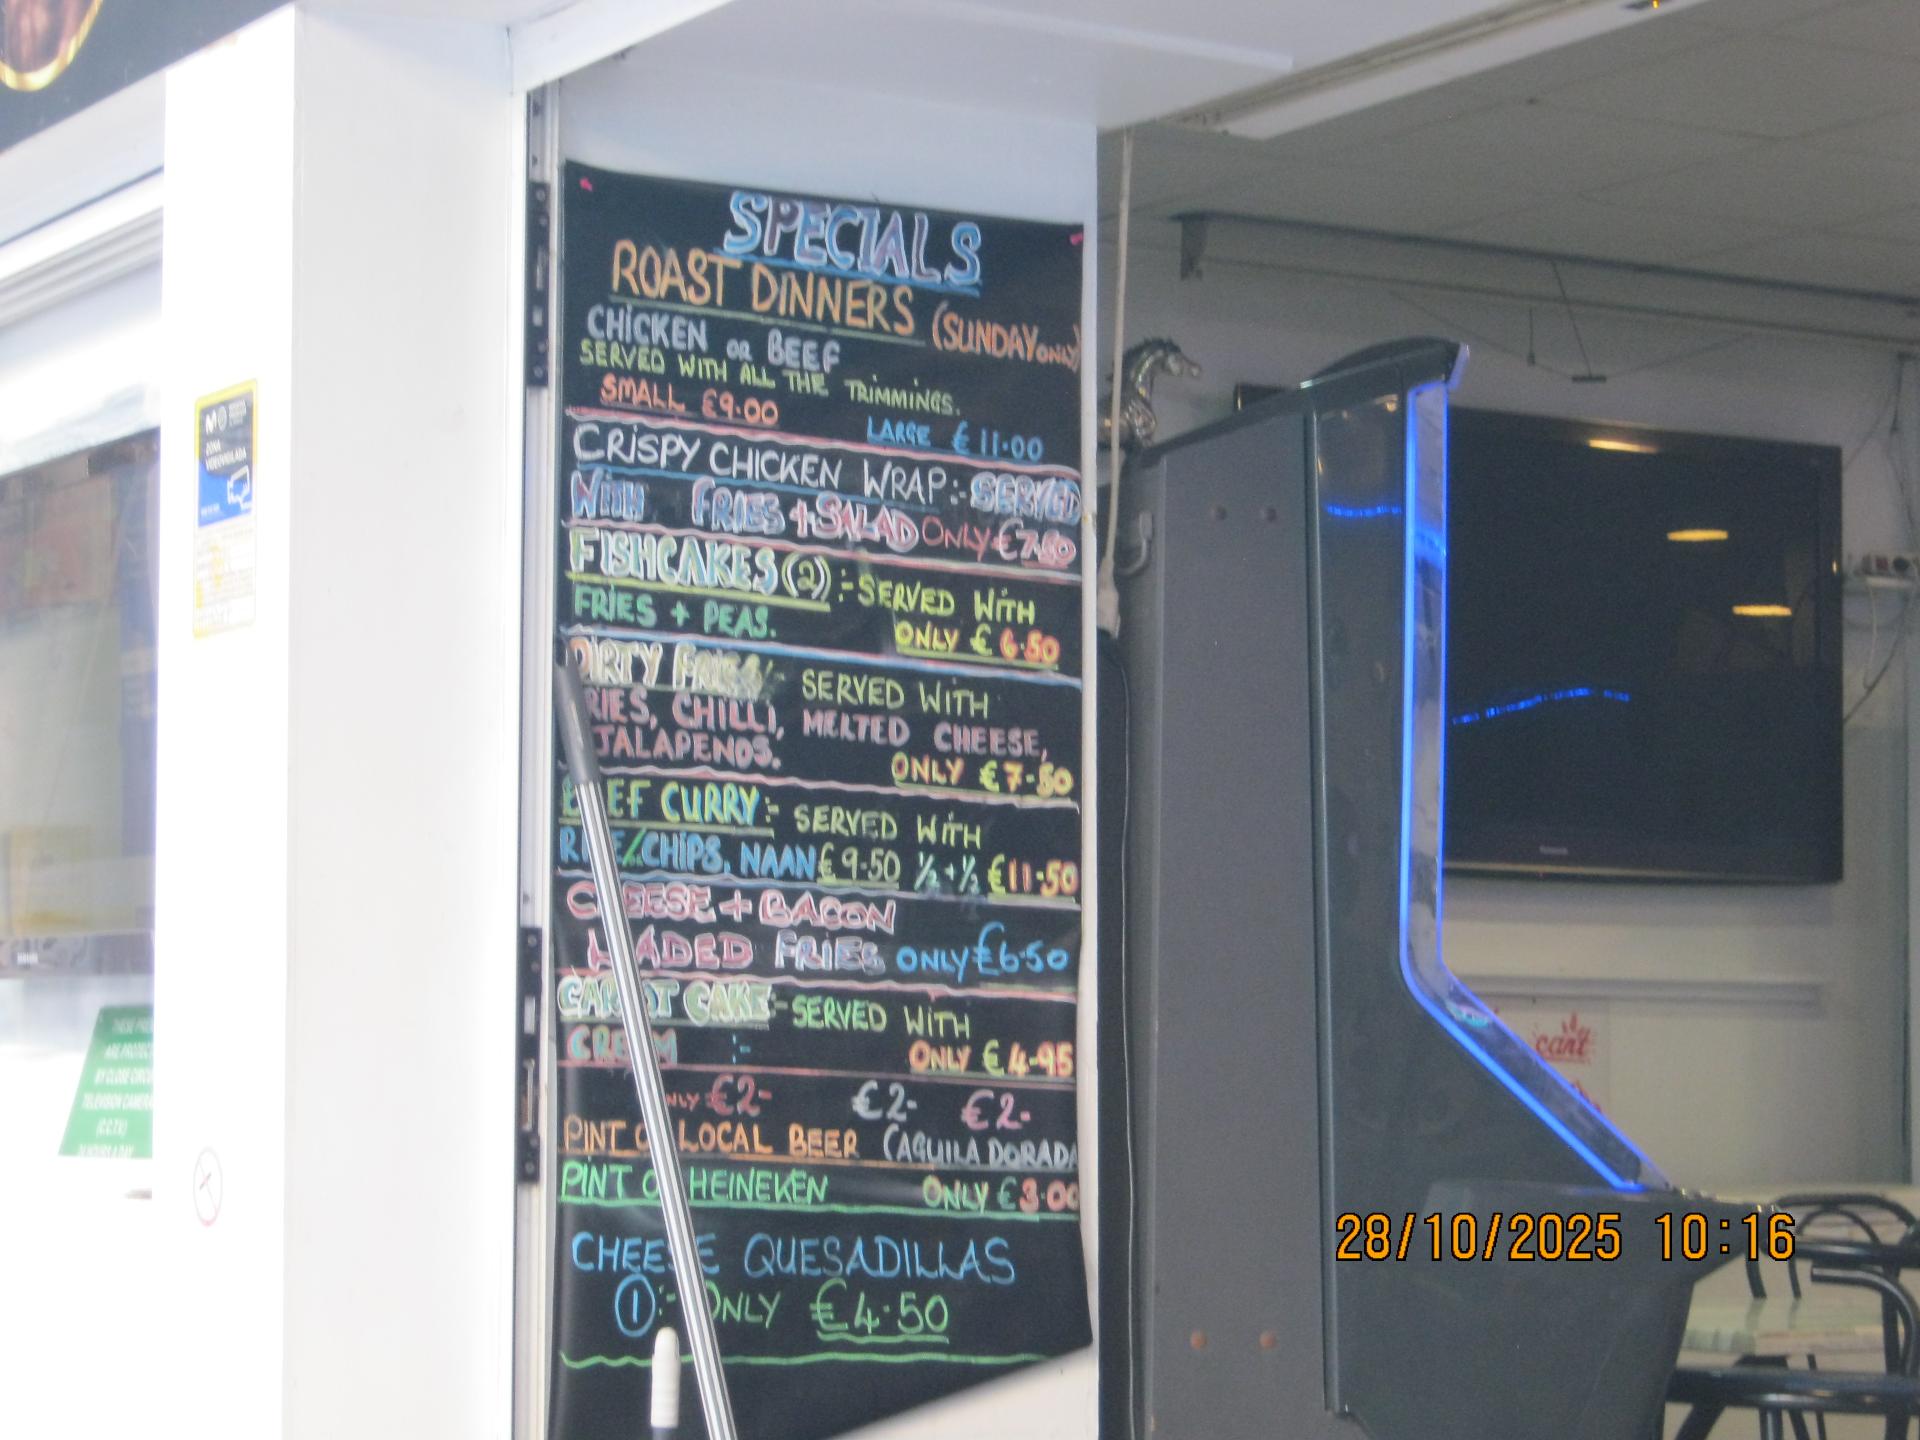 SPECIALS
ROAST DINNERS (SUNDAY ONLY)
CHICKEN OR BEEF
SERVED WITH ALL THE TRIMMINGS.
SMALL €9.00
LARGE €11.00
CRISPY CHICKEN WRAP:- SERVED
WITH FRIES + SALAD ONLY €7.50
FISHCAKES (2):- SERVED WITH
FRIES + PEAS. ONLY €6.50
DIRTY FRIES:- SERVED WITH
RIES, CHILLI, MELTED CHEESE,
JALAPENOS. ONLY €7-50
BEEF CURRY:- SERVED WITH
RICE/CHIPS, NAAN €9.50 ½+½ €11-50
CHEESE + BACON
LOADED FRIES ONLY €6.50
CARROT CAKE:- SERVED WITH
CREAM :- ONLY €4-95
ONLY €2- €2- €2-
PINT OF LOCAL BEER (AQUILA DORADA
PINT OF HEINEKEN ONLY €3.00
CHEESE QUESADILLAS
1:- ONLY €4.50
ZONA
VIDEOVIGILADA
ARE PROTEC
BY CLOSE CIRCU
TELEVISION CAMERA
(C.C.T.V.)
24 HOURS A DAY
Panasonic
cant
28/10/2025 10:16